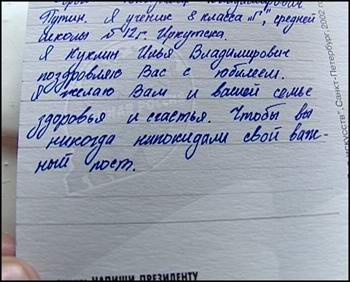 Путин. Я ученик 8 класса "Г", средней
школы №12 г. Иркутска.
Я Куклин Илья Владимирович
поздровляю Вас с юбилеем.
Я желаю Вам и вашей семье
здоровья и счастья. Чтобы вы
никогда непокидали свой важ-
ный пост.
НАПИШИ ПРЕЗИДЕНТУ
искусств". Санкт-Петербург, 2002